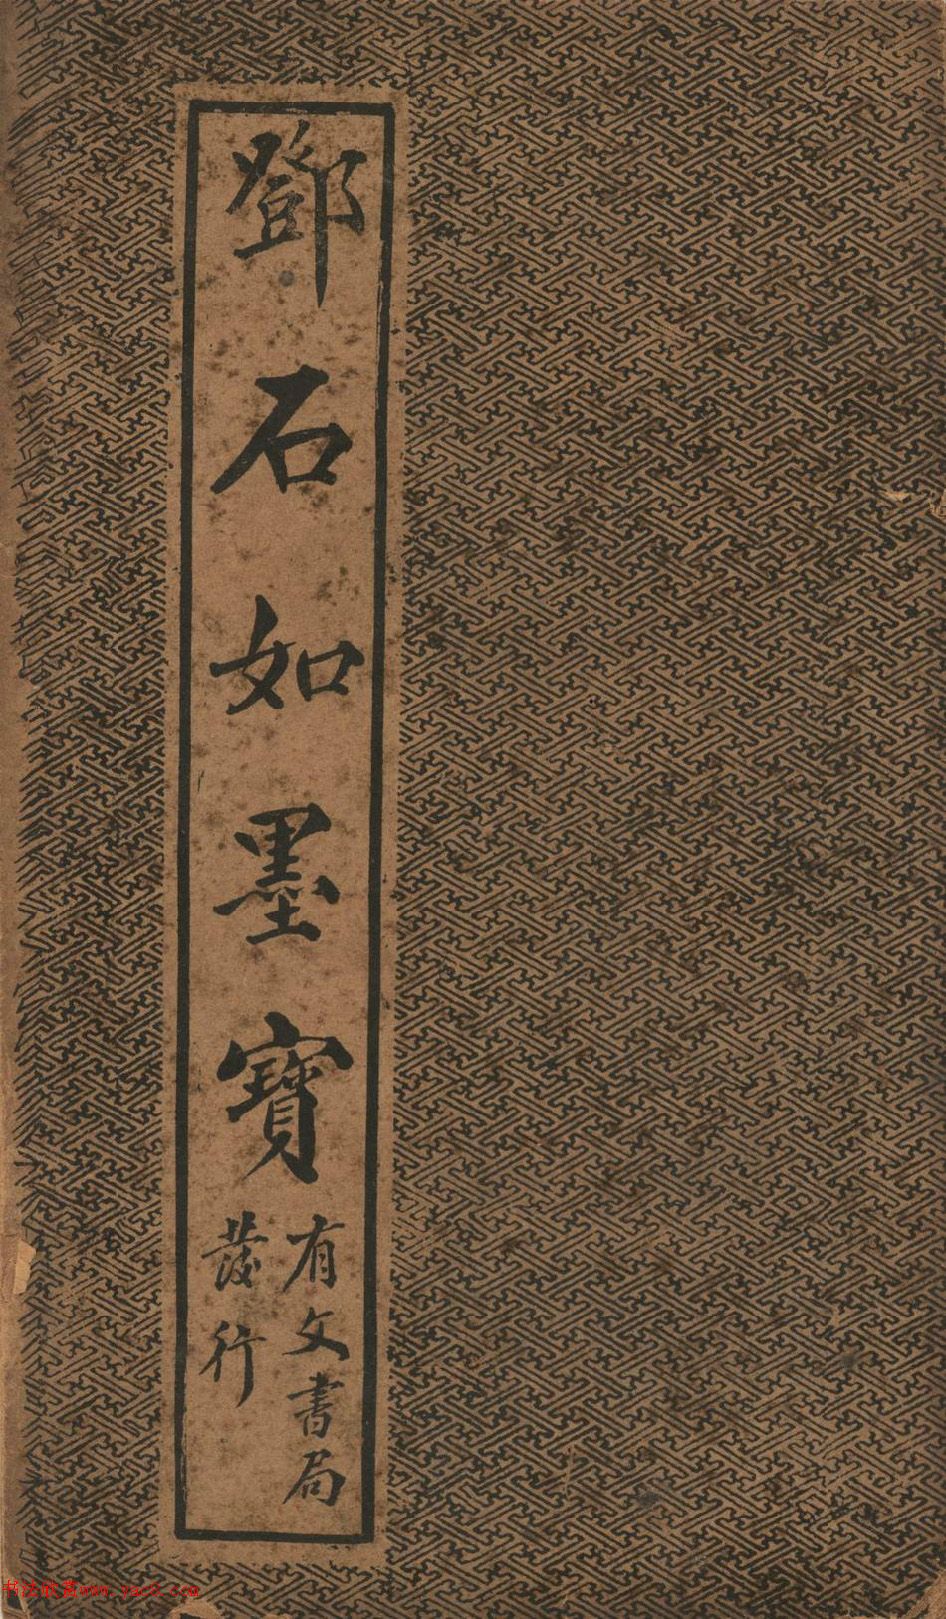 鄧石如墨寶
有文書局
發行
书法欣赏www.yac8.com